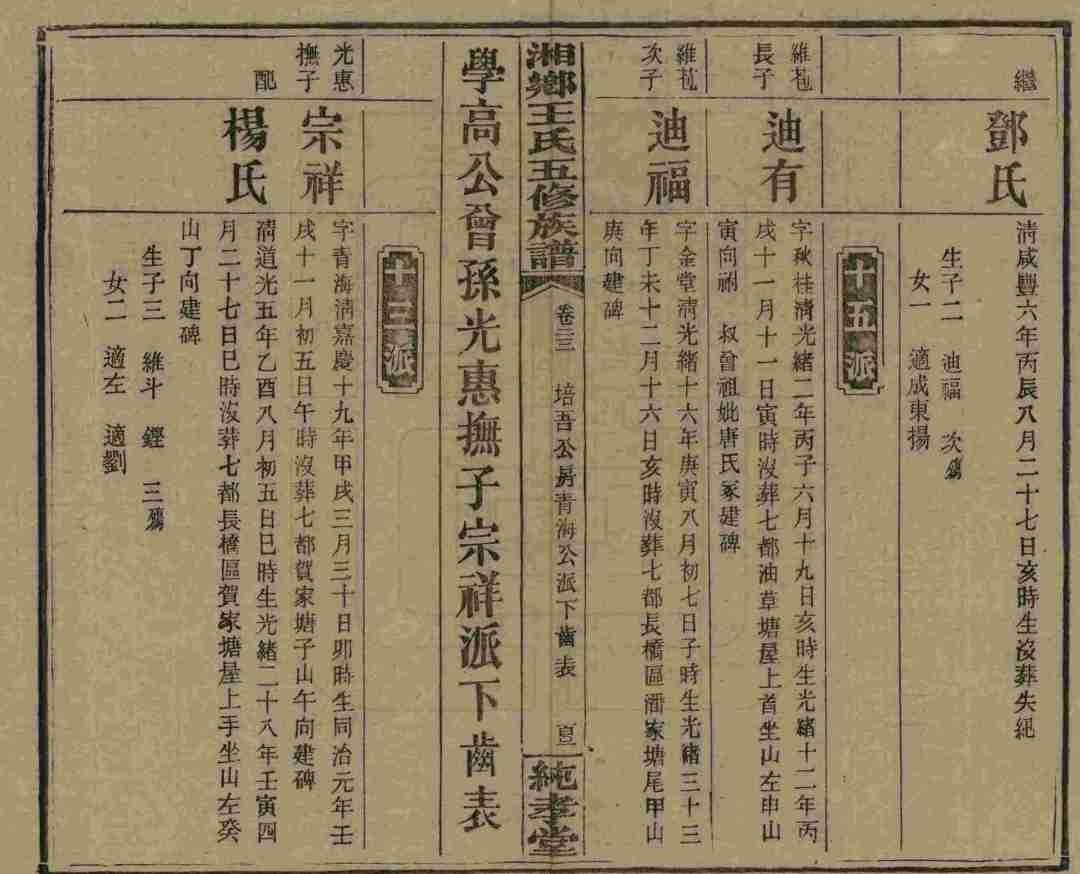 繼
鄧氏
清咸豐六年丙辰八月二十七日亥時生沒葬失紀
生子二　迪福　次殤
女一　適成東揚
十五派
維苞
長子
迪有
字秋桂清光緒二年丙子六月十九日亥時生光緒十二年丙
戌十一月十一日寅時沒葬七都油草塘屋上首坐山左申山
寅向祔　叔曾祖妣唐氏冢建碑
維苞
次子
迪福
字金堂清光緒十六年庚寅八月初七日子時生光緒三十三
年丁未十二月十六日亥時沒葬七都長橋區灁家塘尾甲山
庚向建碑
湘鄉王氏五修族譜
卷三三　培吾公房青海公派下齒表
純孝堂
學高公曾孫光惠撫子宗祥派下齒表
十三派
光惠
撫子
宗祥
字青海清嘉慶十九年甲戌三月三十日卯時生同治元年壬
戌十一月初五日午時沒葬七都賀家塘子山午向建碑
配
楊氏
清道光五年乙酉八月初五日巳時生光緒二十八年壬寅四
月二十七日巳時沒葬七都長橋區賀家塘屋上手坐山左癸
山丁向建碑
生子三　維斗　鏗　三殤
女二　適左　適劉